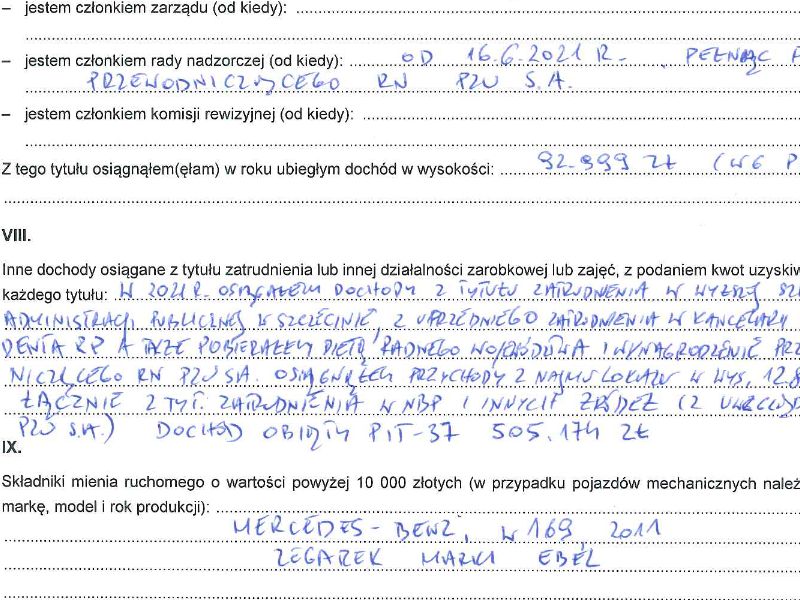 – jestem członkiem zarządu (od kiedy):
– jestem członkiem rady nadzorczej (od kiedy): OD 16.6.2021 R. PEŁNIĄC
PRZEWODNICZĄCEGO RN PZU S.A.
– jestem członkiem komisji rewizyjnej (od kiedy):
Z tego tytułu osiągnąłem(ęłam) w roku ubiegłym dochód w wysokości: 92.999 ZŁ (WG P
VIII.
Inne dochody osiągane z tytułu zatrudnienia lub innej działalności zarobkowej lub zajęć, z podaniem kwot uzyskiw
każdego tytułu: W 2021 R. OSIĄGAŁEM DOCHODY Z TYTUŁU ZATRUDNIENIA W WYŻSZEJ SZ
ADMINISTRACJI PUBLICZNEJ W SZCZECINIE, Z UPRZEDNIEGO ZATRUDNIENIA W KANCELARII
DENTA RP A TAKŻE POBIERAŁEM DIETĘ RADNEGO WOJEWÓDZTWA I WYNAGRODZENIE PRZ
NICZĄCEGO RN PZU SA. OSIĄGNĄŁEM PRZYCHODY Z NAJMU LOKALU W WYS. 12.8
ŁĄCZNIE Z TYT. ZATRUDNIENIA W NBP I INNYCH ŹRÓDEŁ (Z
PZU S.A.) DOCHÓD OBJĘTY PIT-37 505.174 ZŁ
IX.
Składniki mienia ruchomego o wartości powyżej 10 000 złotych (w przypadku pojazdów mechanicznych należ
markę, model i rok produkcji):
MERCEDES-BENZ, W 169, 2011
ZEGAREK MARKI EBEL